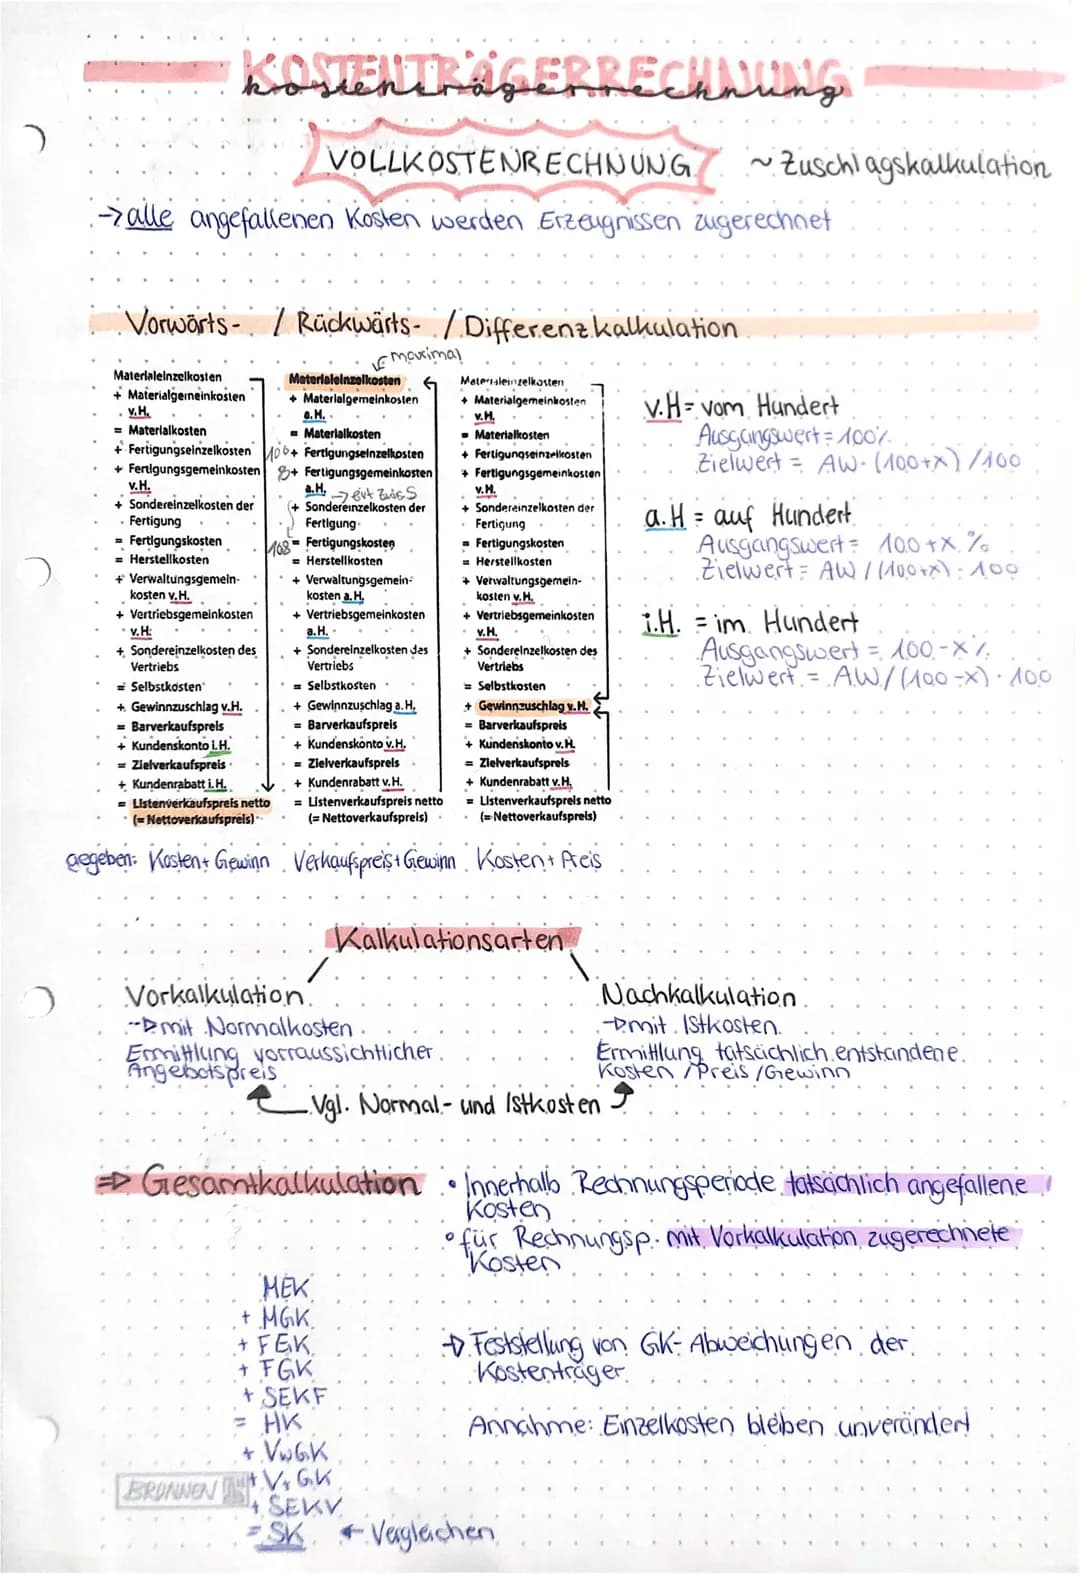 KOSTENTRÄGERRECHNUNG
kostenträgerrechnung
VOLLKOSTENRECHNUNG ~ Zuschlagskalkulation
→ alle angefallenen Kosten werden Erzeugnissen zugerechnet
Vorwärts- / Rückwärts- / Differenzkalkulation
maximal
Materialeinzelkosten
+ Materialgemeinkosten
v.H.
= Materialkosten
+ Fertigungseinzelkosten
+ Fertigungsgemeinkosten
v.H.
+ Sondereinzelkosten der
Fertigung
= Fertigungskosten
= Herstellkosten
+ Verwaltungsgemein-
kosten v.H.
+ Vertriebsgemeinkosten
v.H.
+ Sondereinzelkosten des
Vertriebs
= Selbstkosten
+ Gewinnzuschlag v.H.
= Barverkaufspreis
+ Kundenskonto i.H.
= Zielverkaufspreis
+ Kundenrabatt i.H.
= Listenverkaufspreis netto
(= Nettoverkaufspreis)
Materialeinzelkosten
+ Materialgemeinkosten
a.H.
= Materialkosten
100 + Fertigungseinzelkosten
8 + Fertigungsgemeinkosten
a.H.
+ Sondereinzelkosten der
Fertigung
108 = Fertigungskosten
= Herstellkosten
+ Verwaltungsgemein-
kosten a.H.
+ Vertriebsgemeinkosten
a.H.
+ Sondereinzelkosten des
Vertriebs
= Selbstkosten
+ Gewinnzuschlag a.H.
= Barverkaufspreis
+ Kundenskonto v.H.
= Zielverkaufspreis
+ Kundenrabatt v.H.
= Listenverkaufspreis netto
(= Nettoverkaufspreis)
Materialeinzelkosten
+ Materialgemeinkosten
v.H.
= Materialkosten
+ Fertigungseinzelkosten
+ Fertigungsgemeinkosten
v.H.
+ Sondereinzelkosten der
Fertigung
= Fertigungskosten
= Herstellkosten
+ Verwaltungsgemein-
kosten v.H.
+ Vertriebsgemeinkosten
v.H.
+ Sondereinzelkosten des
Vertriebs
= Selbstkosten
+ Gewinnzuschlag v.H.
= Barverkaufspreis
+ Kundenskonto v.H.
= Zielverkaufspreis
+ Kundenrabatt v.H.
= Listenverkaufspreis netto
(= Nettoverkaufspreis)
v.H = vom Hundert
Ausgangswert = 100%
Zielwert = AW · (100+x) / 100
a.H = auf Hundert
Ausgangswert = 100 + x %
Zielwert = AW / (100+x) · 100
i.H. = im Hundert
Ausgangswert = 100 - x %
Zielwert = AW / (100-x) · 100
gegeben: Kosten + Gewinn Verkaufspreis + Gewinn Kosten + Preis
Kalkulationsarten
Vorkalkulation
--> mit Normalkosten
Ermittlung vorraussichtlicher
Angebotspreis
Nachkalkulation
-> mit Istkosten
Ermittlung tatsächlich entstandene
Kosten / Preis / Gewinn
Vgl. Normal- und Istkosten
=> Gesamtkalkulation
• Innerhalb Rechnungsperiode tatsächlich angefallene
Kosten
• für Rechnungsp. mit Vorkalkulation zugerechnete
Kosten
MEK
+ MGK
+ FEK
+ FGK
+ SEKF
= HK
+ VwGK
+ VtGK
+ SEKV
= SK ← Vergleichen
-> Feststellung von GK-Abweichungen der
Kostenträger
Annahme: Einzelkosten bleiben unverändert
BRUNNEN